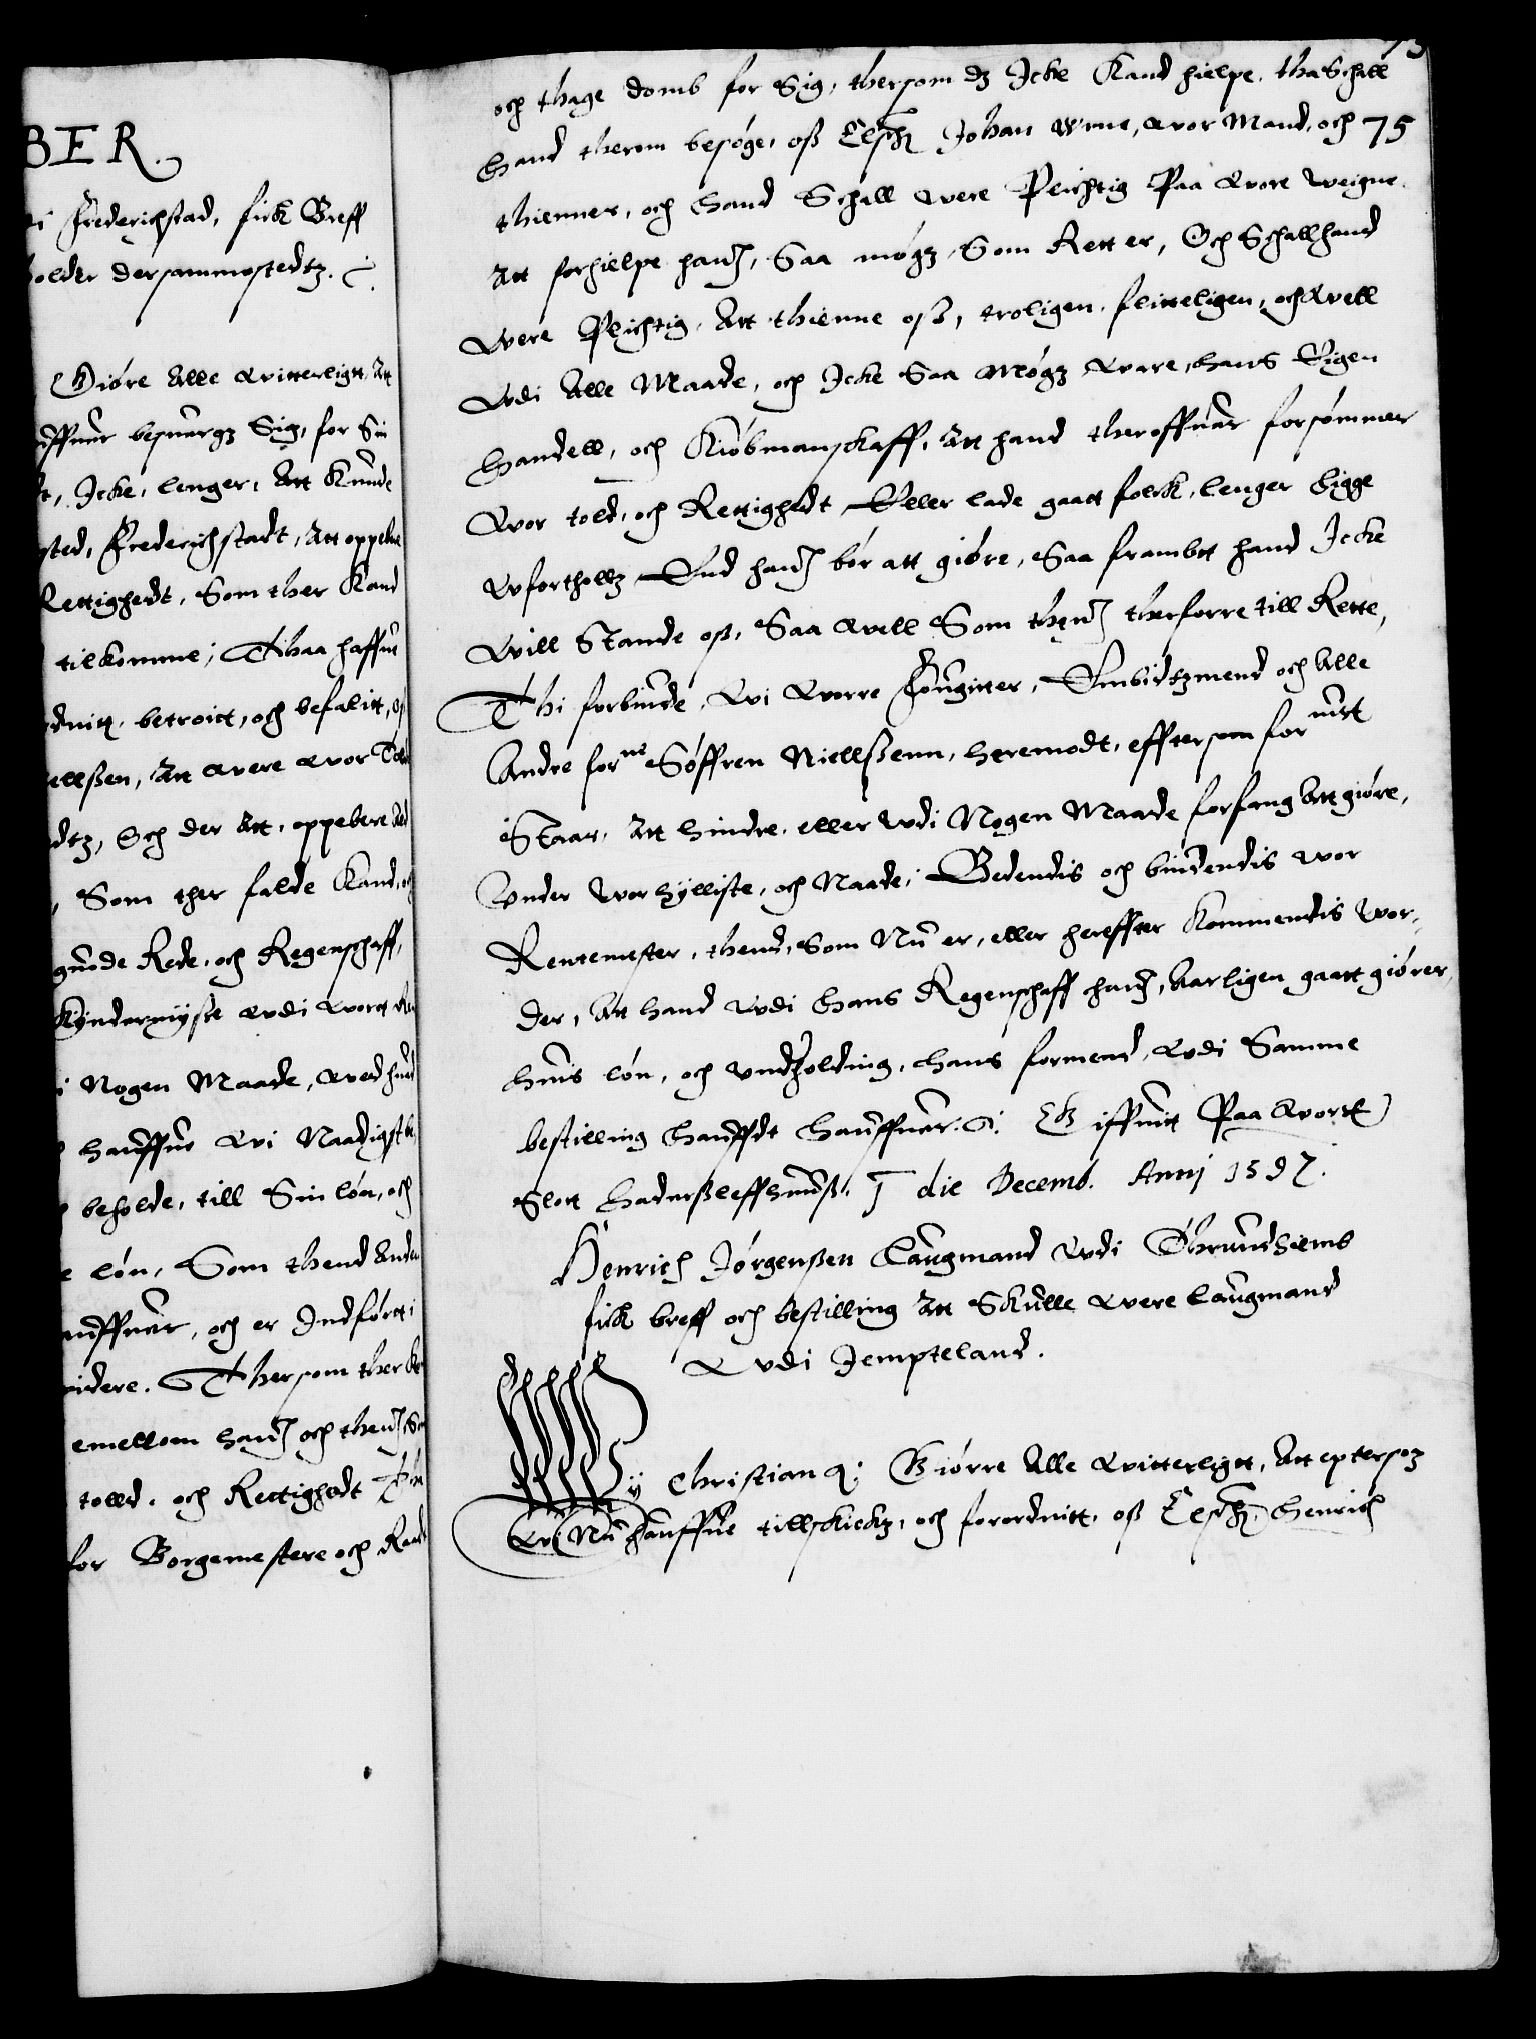 BER.
i Frederichstad, fick Breff
holder dersammestedtz.
Giøre Alle witterligtt, Att
uffuer besuergz Sig, for Sin
Icke, lenger, Att Kunde
sted, Frederichstadt, Att oppebe
Rettighedt, Som ther Kand
tilkomme; Thaa haffue
dnitt, betroitt, och befalitt,
ellßen, Att were wor Told
dtz, Och der Att, oppebere
, Som ther falde Kand, och
giøde Rede, och Regenschaff,
Kyndermysse wdi wortt
i Nogen Maade, wed
hauffue wi Naadigst
beholde, till Sin løn, och
løn, Som thend Anden
auffuer, och er Indførtt i
videre. Thersom ther
emellom hand och thend
tolld, och Rettighedt
for Borgemestere och Raad
75
och thage domb for Sig, thersom dz Icke Kand hielpe, tha Schall
hand therom besøge, oß Elsch: Johan Wme, wor Mand, och
thienner, och hand Schall were Plichtig Paa wore weigne,
Att forhielpe hand, Saa møgz, Som Rett er, Och Schall hand
were Plichtig, Att thienne oß, troligen, flitteligen, och well
wdi Alle Maade, och Icke Saa Møgz ware, hans Eigen
Handell, och Kiøbmanskaff, Att hand theroffuer forsømmer
wor told, och Rettighedt, Eller lade gaatt folck, lenger ligge
wforthollz, End hand bør att giøre, Saa frambtt hand Icke
will Stande oß, Saa well Som thend therforre till Rette,
Thi forbiude, wi worre Fougitter, Embidtzmend och Alle
Andre forne Søffren Niellßenn, heremodt, effterson for uist
Staar, Att hindre, eller wdi Nogen Maade forfang Att giøre,
Vnder wor hylliste, och Naade, Bedendis och biudendis wor
Rentemester, thend, Som Nu er, eller hereffter Kommendis wor-
der, Att hand wdi hans Regenschaff hand, Aarligen gaatt giører,
huis løn, och vndholding, hans formend, wdi Samme
bestilling hauffdt hauffuer. Giffuitt Paa wortt
Slott Haderßleffhuuß. 1 die Decemb. Anni 1597.
Henrich Jørgenßen Laugmand wdi Thrundhiems
fick breff och bestilling Att Skulle were laugmand
wdi Jempteland.
Wy Christian 4. Giørre Alle witterligtt, Att epterson
wi Nu hauffue tillskickz, och forordnitt, oß Elsch: Henrich